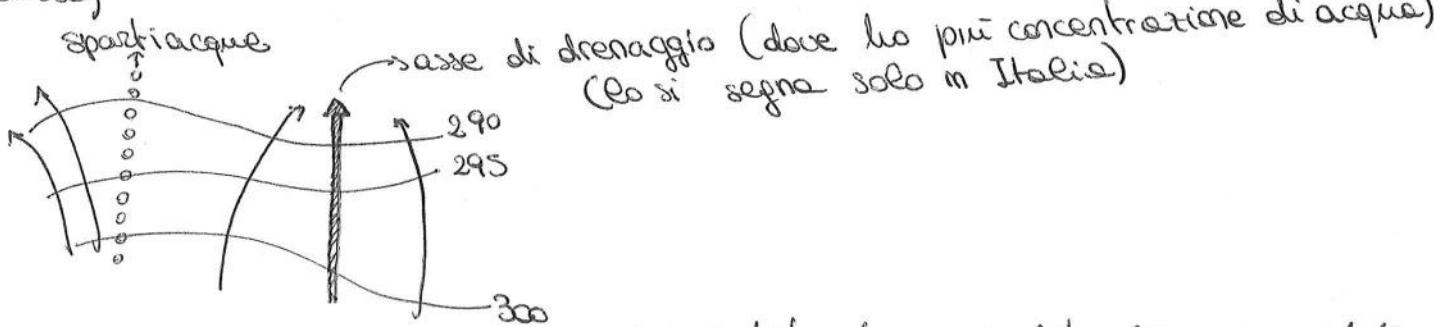 spartiacque
asse di drenaggio (dove ho più concentrazione di acqua)
(lo si segna solo in Italia)
290
295
300